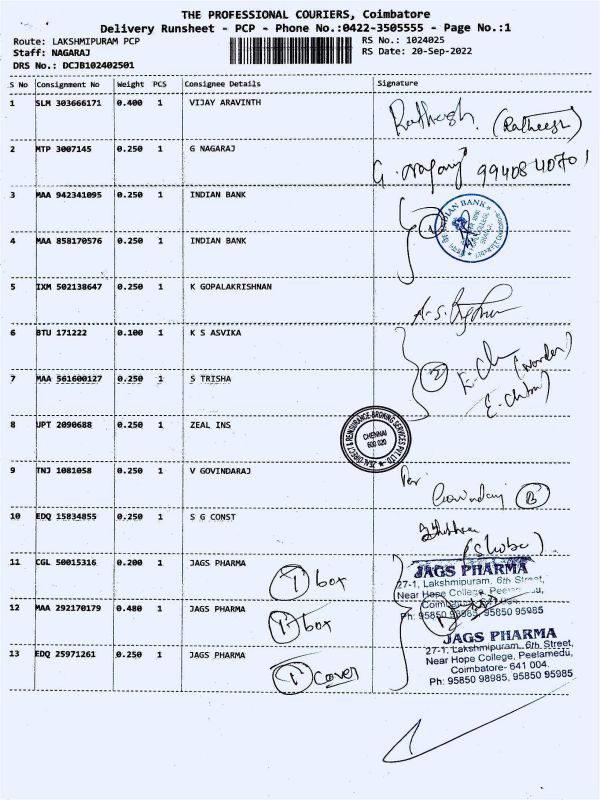 THE PROFESSIONAL COURIERS, Coimbatore
Delivery Runsheet - PCP - Phone No.:0422-3505555 - Page No.:1
Route: LAKSHMIPURAM PCP RS No.: 1024025
Staff: NAGARAJ RS Date: 20-Sep-2022
DRS No.: DCJB102402501
S No Consignment No Weight PCS Consignee Details Signature
1 SLM 303666171 0.400 1 VIJAY ARAVINTH
Ratheesh. (Ratheesh)
2 MTP 3007145 0.250 1 G NAGARAJ
G. 9940840701
3 MAA 942341095 0.250 1 INDIAN BANK
INDIAN BANK
4 MAA 858170576 0.250 1 INDIAN BANK
5 IXM 502138647 0.250 1 K GOPALAKRISHNAN
6 BTU 171222 0.100 1 K S ASVIKA
(Warden)
7 MAA 561600127 0.250 1 S TRISHA
2
8 UPT 2090688 0.250 1 ZEAL INS
ZEAL DIRECT & REINSURANCE BROKING SERVICES PVT LTD.
CHENNAI
600 020
9 TNJ 1081058 0.250 1 V GOVINDARAJ
Govindaraj B
10 EDQ 15834855 0.250 1 S G CONST
(Shoba)
11 CGL 50015316 0.200 1 JAGS PHARMA
1 box
JAGS PHARMA
27-1, Lakshmipuram, 6th Street,
Near Hope College,
12 MAA 292170179 0.480 1 JAGS PHARMA
1 box
Ph: 95850 98985, 95850 95985
13 EDQ 25971261 0.250 1 JAGS PHARMA
1 cover
JAGS PHARMA
27-1, Lakshmipuram, 6th Street,
Near Hope College, Peelamedu,
Coimbatore- 641 004.
Ph: 95850 98985, 95850 95985